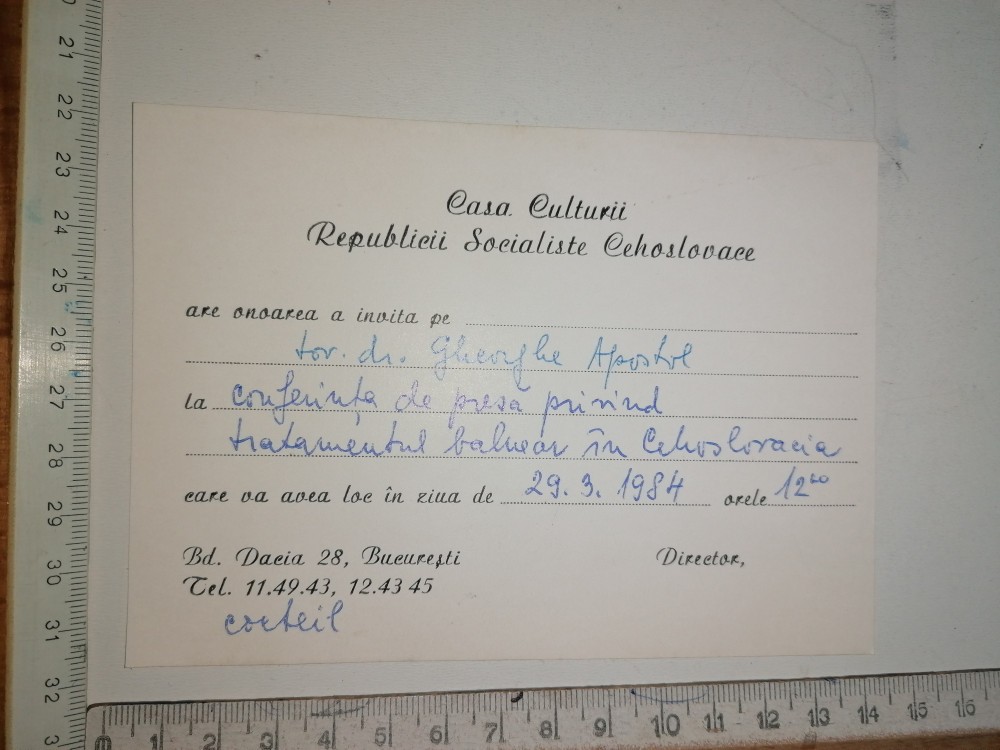 Casa Culturii
Republicii Socialiste Cehoslovace
are onoarea a invita pe
tov. dr. Gheorghe Apostol
la conferința de presă privind
tratamentul balnear în Cehoslovacia
care va avea loc în ziua de 29. 3. 1984 orele 12⁰⁰
Bd. Dacia 28, București
Director,
Tel. 11.49.43, 12.43 45
cocteil
21
22
23
24
25
26
27
28
29
30
31
32
0 1 2 3 4 5 6 7 8 9 10 11 12 13 14 15 16